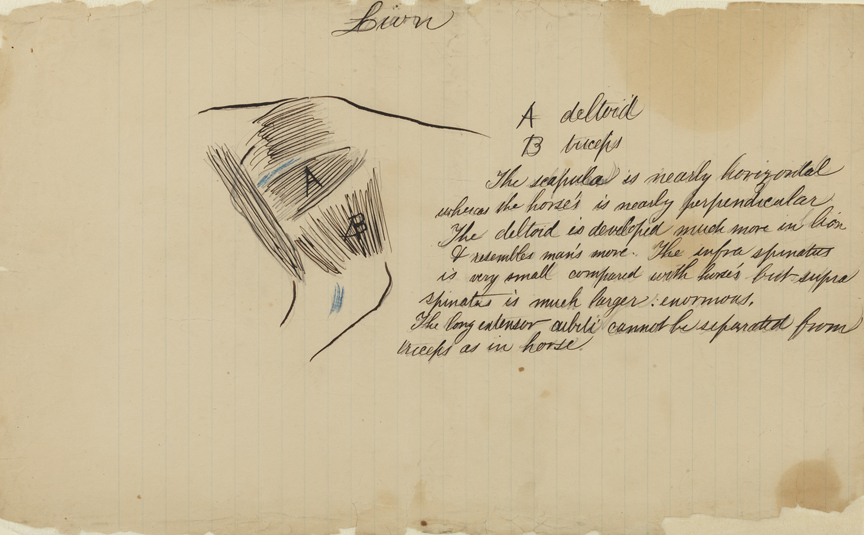 Lion
A deltoid
B triceps
The scapula is nearly horizontal
whereas the horse's is nearly perpendicular
The deltoid is developed much more in lion
& resembles man's more. The infra spinatus
is very small compared with horse's but supra
spinatus is much larger: enormous.
The long extensor cubiti cannot be separated from
triceps as in horse.
A
B